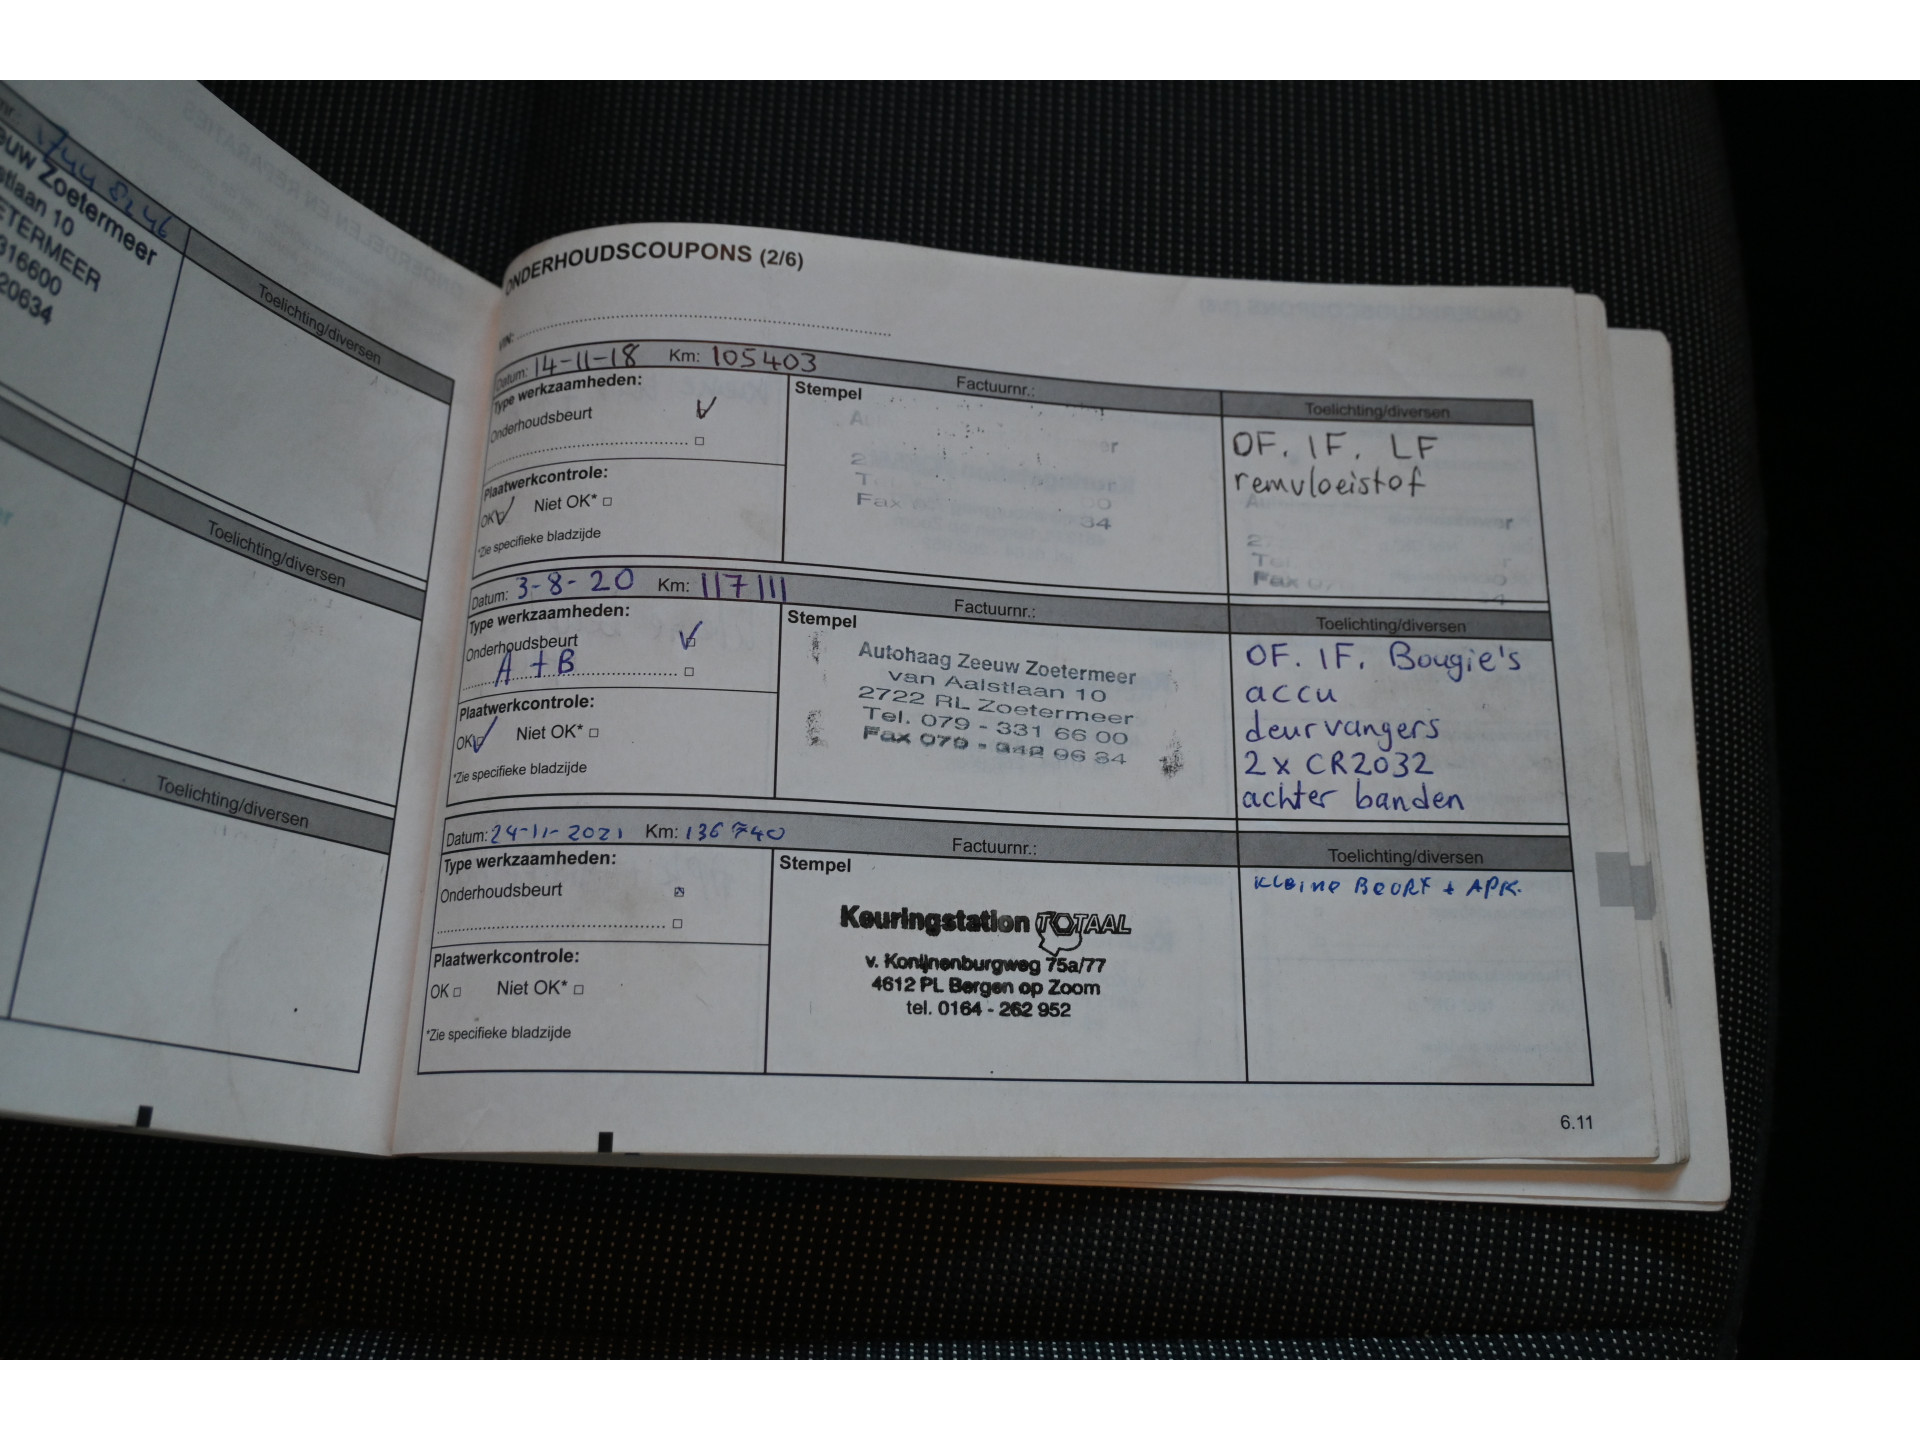 1744 8246
Zoetermeer
10
316600
20634
Toelichting/diversen
Toelichting/diversen
Toelichting/diversen
ONDERHOUDSCOUPONS (2/6)
VIN:
Datum: 14-11-18 Km: 105403 Factuurnr.: Toelichting/diversen
Type werkzaamheden:
Onderhoudsbeurt
Plaatwerkcontrole:
OK Niet OK*
*Zie specifieke bladzijde
Stempel
Fax
OF. IF. LF
remvloeistof
Fax
Datum: 3-8-20 Km: 117111 Factuurnr.: Toelichting/diversen
Type werkzaamheden:
Onderhoudsbeurt
A + B
Plaatwerkcontrole:
OK Niet OK*
*Zie specifieke bladzijde
Stempel
Autohaag Zeeuw Zoetermeer
van Aalstlaan 10
2722 RL Zoetermeer
Tel. 079 - 331 66 00
Fax 079 - 342 96 34
OF. IF. Bougie's
accu
deurvangers
2 x CR2032
achter banden
Datum: 24-11-2021 Km: 136740 Factuurnr.: Toelichting/diversen
Type werkzaamheden:
Onderhoudsbeurt
Plaatwerkcontrole:
OK Niet OK*
*Zie specifieke bladzijde
Stempel
Keuringstation TOTAAL
v. Konijnenburgweg 75a/77
4612 PL Bergen op Zoom
tel. 0164 - 262 952
KLEINE BEURT + APK.
6.11